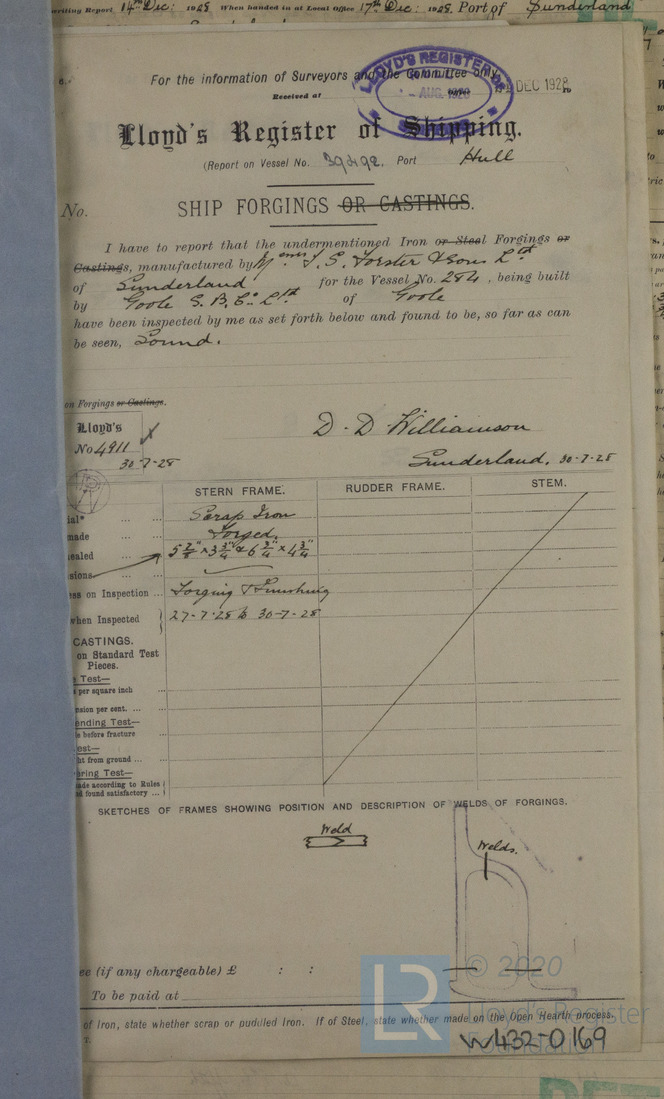 writing Report 14th Dec: 1928 When handed in at Local Office 17th Dec: 1928. Port of Sunderland
For the information of Surveyors and the Committee only
Received at
LLOYD'S REGISTER OF
AUG. 1928
DEC 1928
Lloyd's Register of Shipping.
(Report on Vessel No. 39492. Port Hull
No.
SHIP FORGINGS OR CASTINGS.
I have to report that the undermentioned Iron or Steel Forgings or
Castings, manufactured by Messrs J. S. Forster & Sons Ltd
of Sunderland for the Vessel No. 284, being built
by Goole S. B. Co. Ltd of Goole
have been inspected by me as set forth below and found to be, so far as can
be seen, Sound.
on Forgings or Castings.
Lloyd's
No 4911
30-7-28
D. D. Williamson
Sunderland, 30-7-28
STERN FRAME. RUDDER FRAME. STEM.
ial* ... ... Scrap Iron
made ... Forged.
ealed ... 5 7/8" × 3 3/4" & 6 3/4" × 4 3/4"
sions ... ...
ess on Inspection ... Forging & Finishing
when Inspected 27-7-28 to 30-7-28
CASTINGS.
on Standard Test
Pieces.
e Test—
s per square inch ...
nsion per cent. ... ...
ending Test—
le before fracture ...
est—
ht from ground ... ...
ering Test—
ade according to Rules
d found satisfactory ...
SKETCHES OF FRAMES SHOWING POSITION AND DESCRIPTION OF WELDS OF FORGINGS.
Weld
Welds.
ee (if any chargeable) £ : :
To be paid at
of Iron, state whether scrap or puddled Iron. If of Steel, state whether made on the Open Hearth process.
LR
© 2020
Lloyd's Register
Foundation
W432-0169